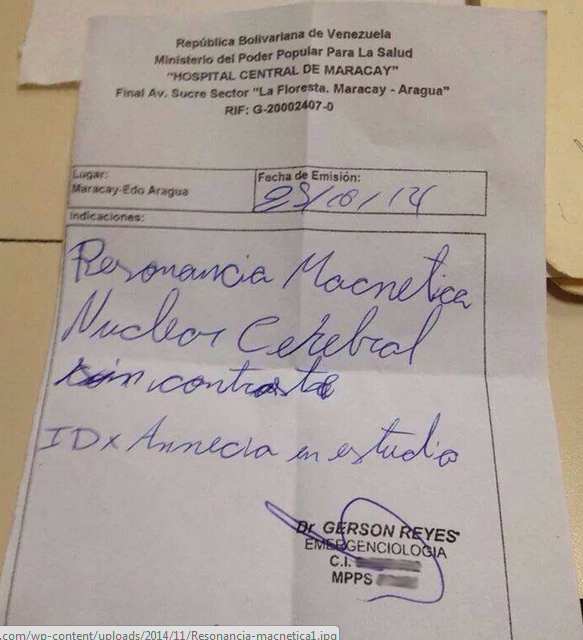 República Bolivariana de Venezuela
Ministerio del Poder Popular Para La Salud
"HOSPITAL CENTRAL DE MARACAY"
Final Av. Sucre Sector "La Floresta. Maracay - Aragua"
RIF: G-20002407-0
Lugar:
Maracay-Edo Aragua
Fecha de Emisión:
Indicaciones:
Resonancia Macnetica
Nuclear Cerebral
contraste
IDx Amnecia en estudio
Dr. GERSON REYES
EMERGENCIOLOGIA
C.I.
MPPS
.com/wp-content/uploads/2014/11/Resonancia-macnetica1.jpg